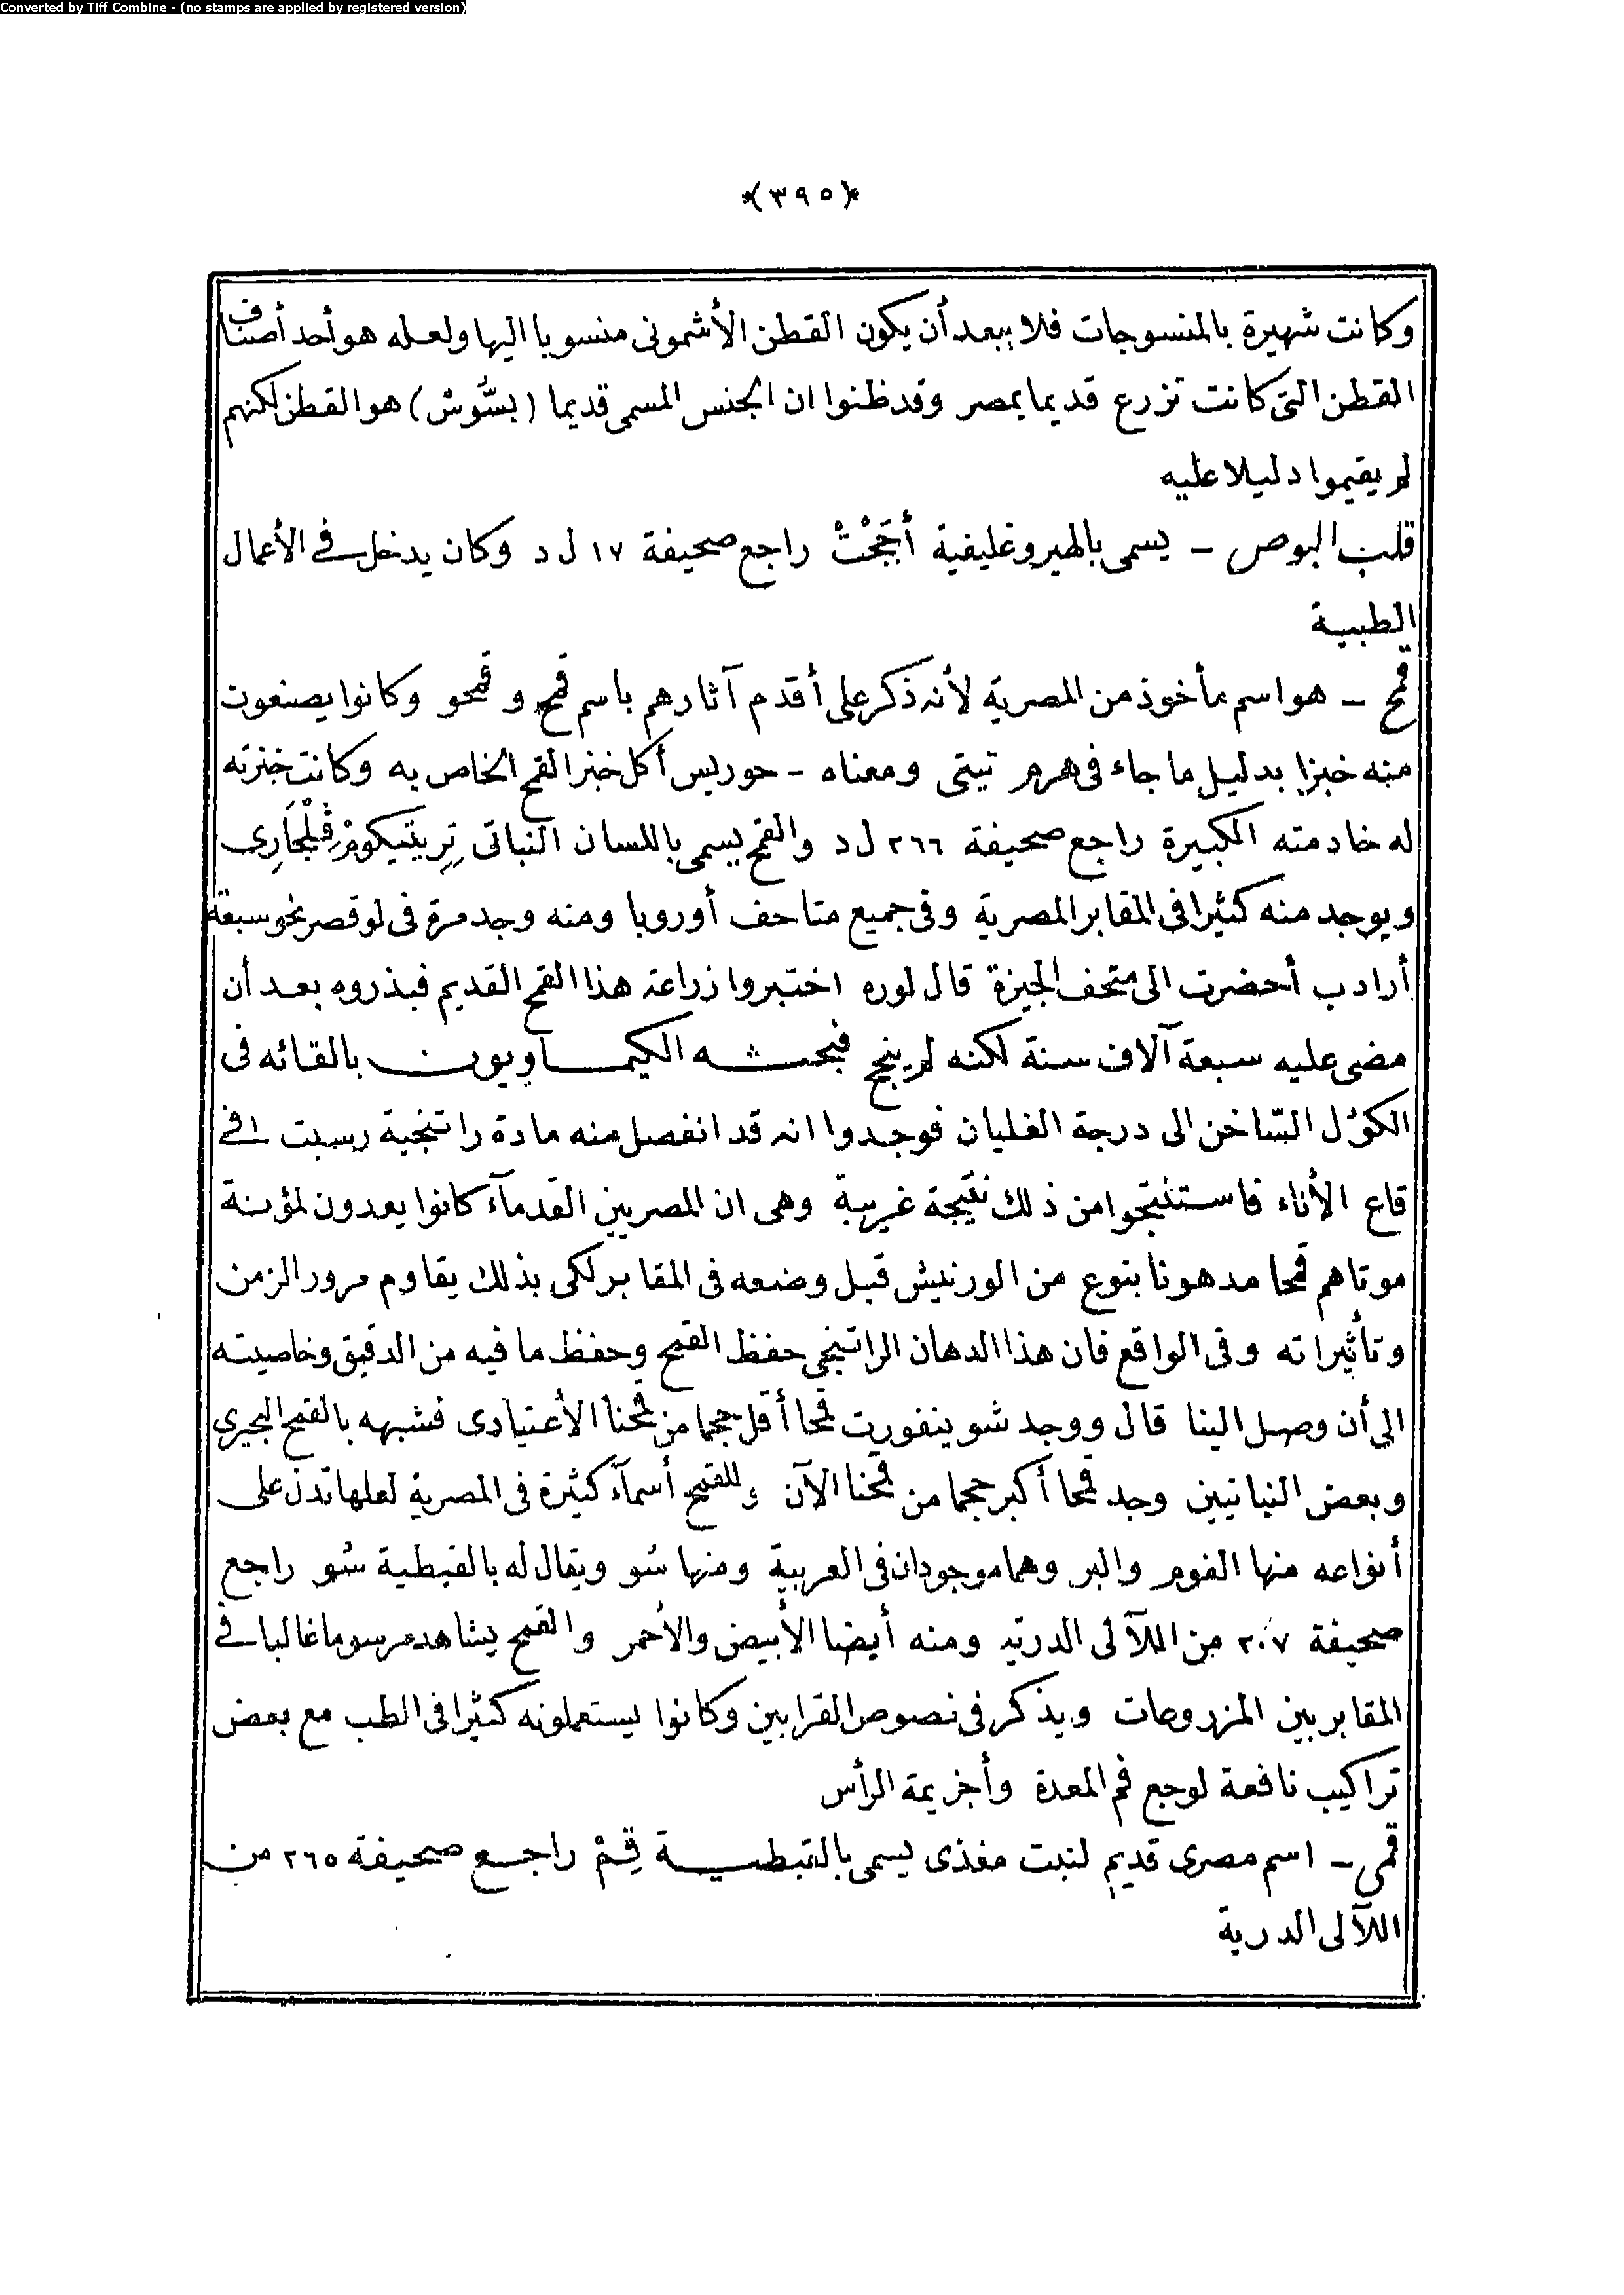 Converted by Tiff Combine - (no stamps are applied by registered version)
*(٣٩٥)*
وكانت شهيرة بالمنسوجات فلا يبعد أن يكون القطن الأشمونى منسوبا اليها ولعله هو أحد أصناف
القطن التى كانت تزرع قديما بمصر وقد ظنوا ان الجنس المسمى قديما (بسُّوسْ) هو القطن لكنهم
لم يقيموا دليلا عليه
قلب البوص ـ يسمى بالهيروغليفية راجع صحيفة ١٧ ل د وكان يدخل فى الأعمال
الطبية
قمح ـ هو اسم مأخوذ من المصرية لأنه ذكر على أقدم آثارهم باسم قمح و قمحو وكانوا يصنعون
منه خبزا بدليل ما جاء فى هرم تيتى ومعناه ـ حوريس أكل خبز القمح الخاص به وكانت خبزته
له خادمته الكبيرة راجع صحيفة ٢٦٦ ل د والقمح يسمى باللسان النباتى تِرِيتيكومْ ڤِلْجَارِى
ويوجد منه كثيرا فى المقابر المصرية وفى جميع متاحف أوروبا ومنه وجد مرة فى لوقصر نحو سبعة
أرادب أحضرت الى متحف الجيزة قال لوره اختبروا زراعة هذا القمح القديم فبذروه بعد أن
مضى عليه سبعة آلاف سنة لكنه لم ينجح فبحثه الكيماويون بالقائه فى
الكؤل السّاخن الى درجة الغليان فوجدوا انه قد انفصل منه مادة راتنجية رسبت فى
قاع الأناء فاستنتجوا من ذلك نتيجة غريبة وهى ان المصريين القدمآء كانوا يعدون لمؤنة
موتاهم قمحا مدهونا بنوع من الورنيش قبل وضعه فى المقابر لكى بذلك يقاوم مرور الزمن
وتأثيراته وفى الواقع فان هذا الدهان الراتنجى حفظ القمح وحفظ ما فيه من الدقيق وخاصيته
الى أن وصل الينا قال ووجد شوينفورت قمحا أقل حجما من قمحنا الأعتيادى فشبهه بالقمح البحيرى
وبعض النباتيين وجد قمحا أكبر حجما من قمحنا الآن وللقمح أسمآء كثيرة فى المصرية لعلها تدل على
أنواعه منها الفوم والبر وهما موجودان فى العربية ومنها سُو ويقال له بالقبطية سُو راجع
صحيفة ٢٠٧ من اللآلى الدريه ومنه أيضا الأبيض والأحمر والقمح يشاهد مرسوما غالبا فى
المقابر بين المزروعات ويذكر فى نصوص القرابين وكانوا يستعملونه كثيرا فى الطب مع بعض
تراكيب نافعة لوجع فم المعدة وأخزيمة الرأس
قمى ـ اسم مصرى قديم لنبت مغذى يسمى بالقبطية قِمْ راجع صحيفة ٢٦٥ من
اللآلى الدرية